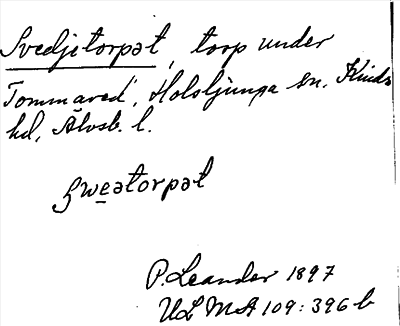 Svedjetorpet, torp under
Tommared, Holsljunga sn. Kinds
hd, Älvsb. l.
sweatorpət
P. Leander 1897
ULMA 109:396 b